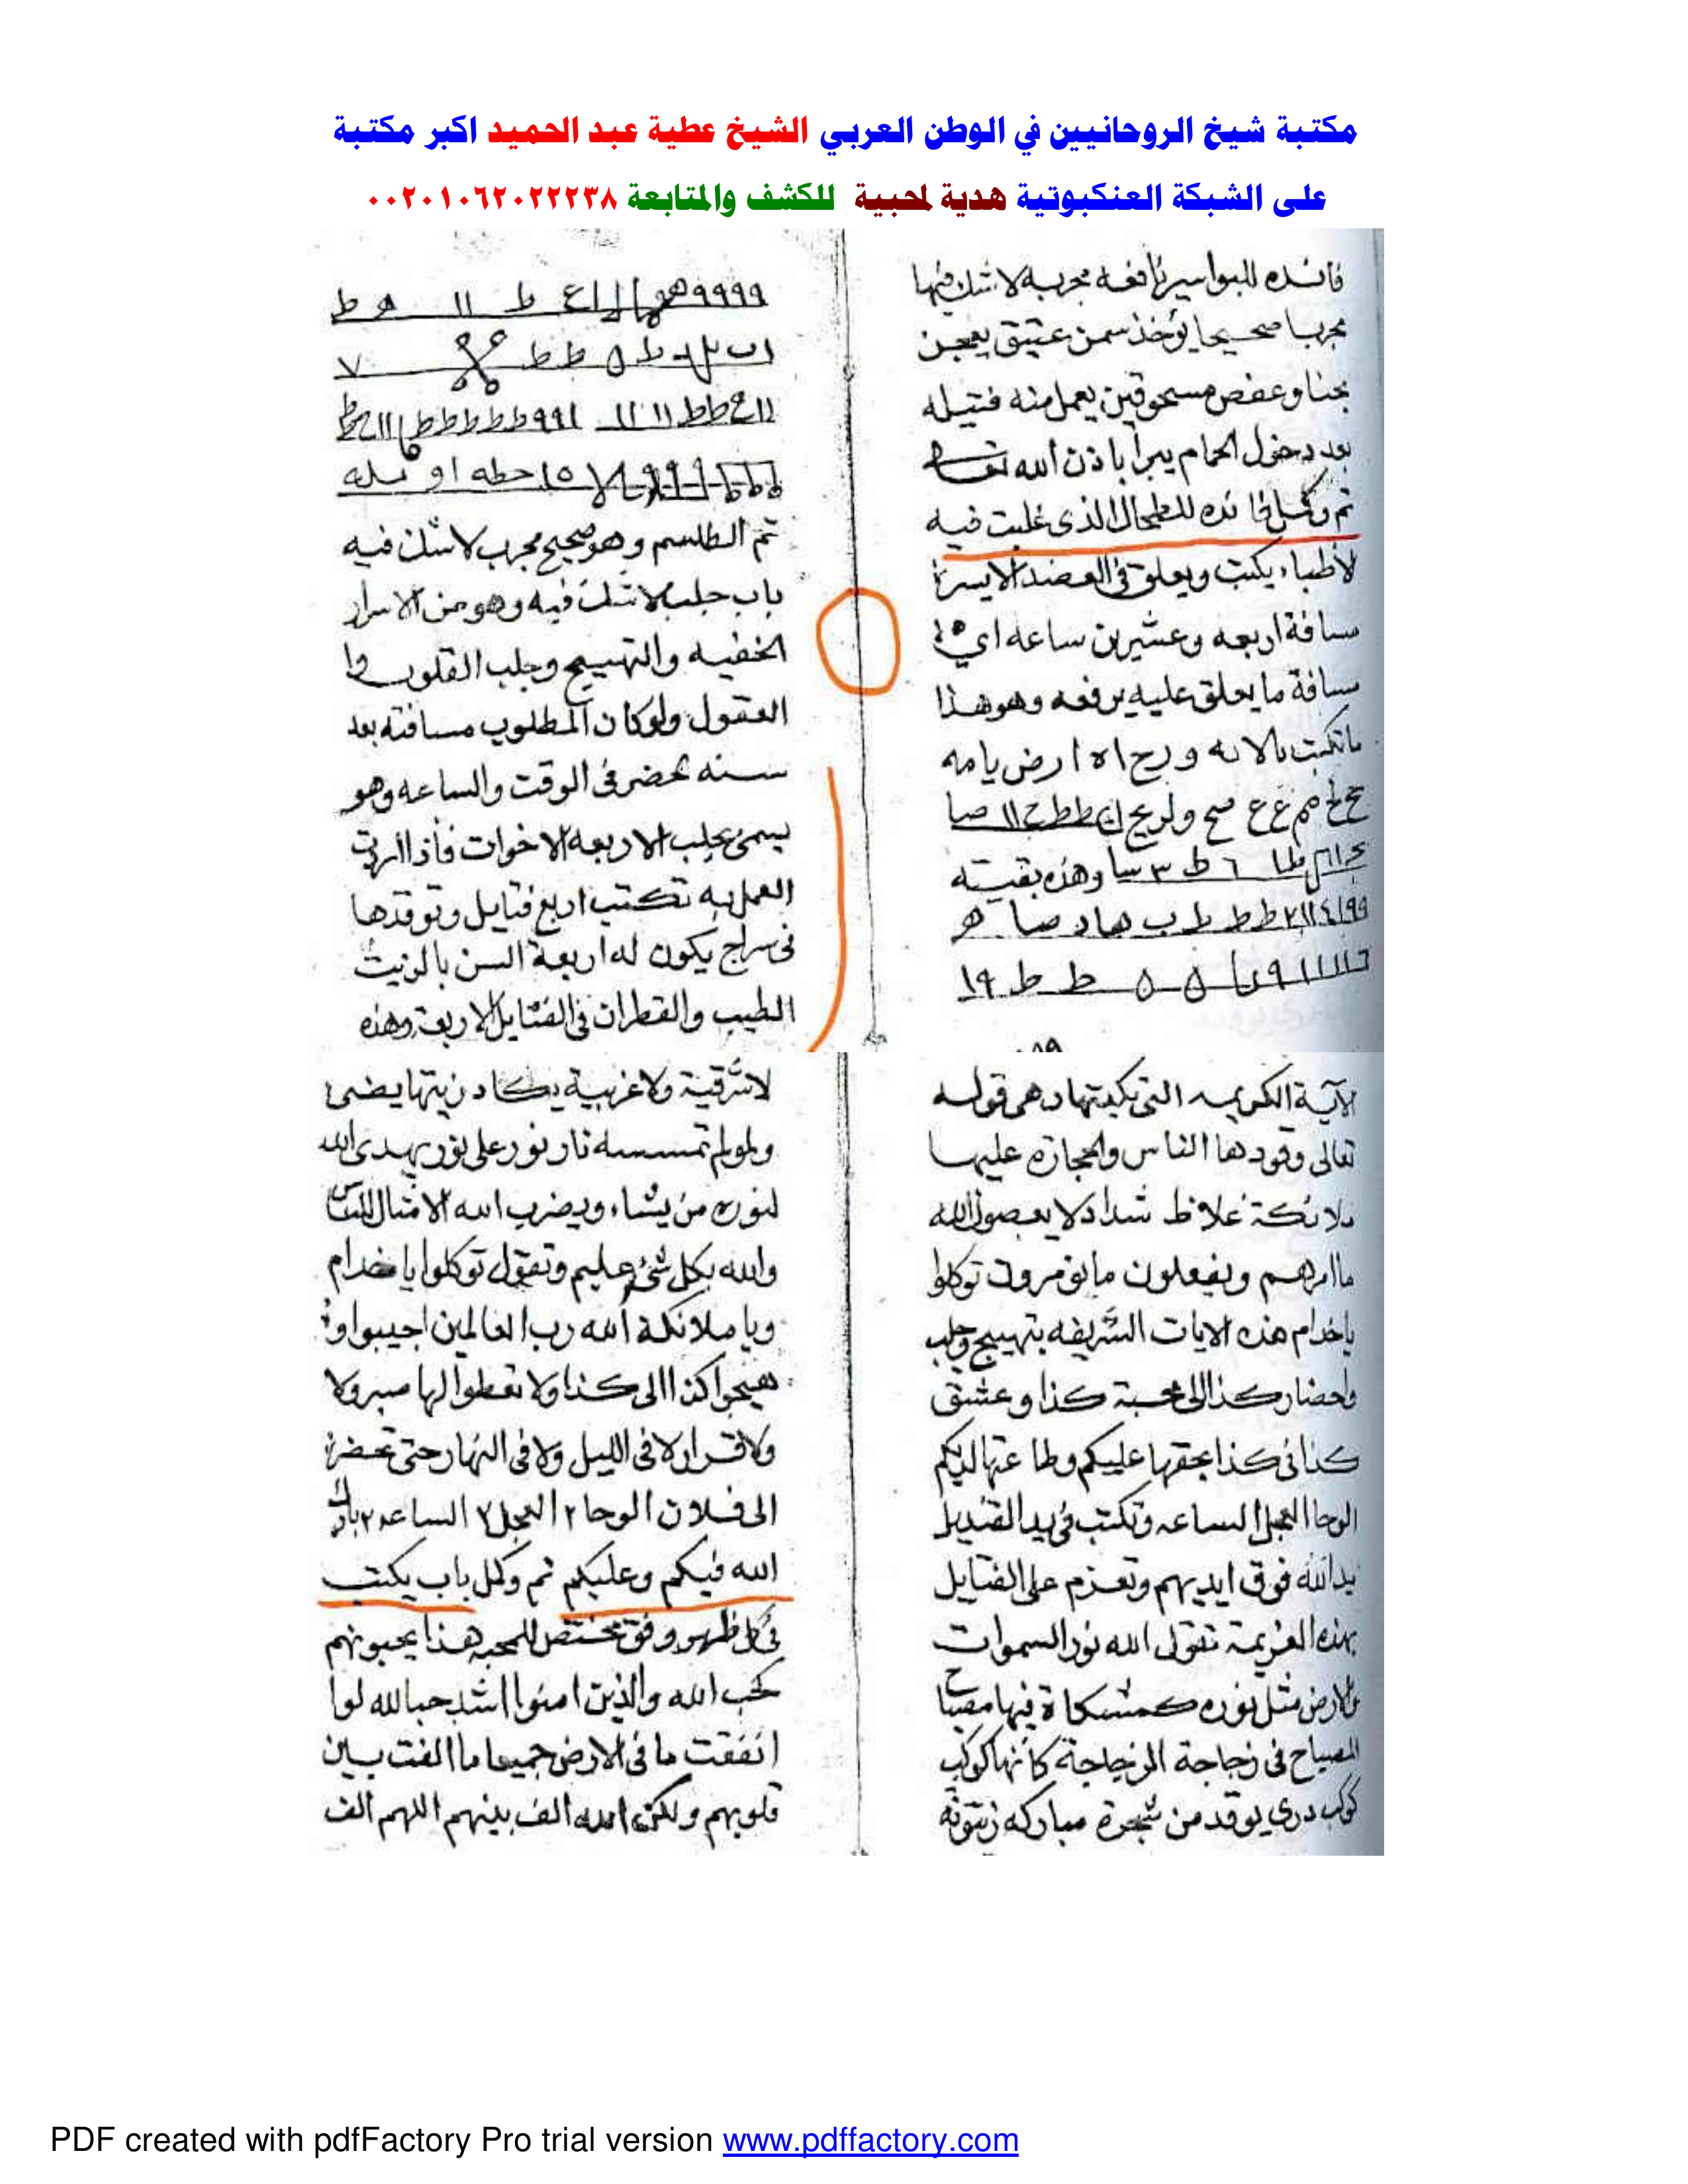 مكتبة شيخ الروحانيين في الوطن العربي الشيخ عطية عبد الحميد اكبر مكتبة
على الشبكة العنكبوتية هدية لمحبية للكشف والمتابعة ٠٠٢٠١٠٦٢٠٢٢٢٣٨
فائده للبواسير نافعه مجربه لا شك فيها
مجربا صحيحا يؤخذ سمن عتيق يعجن
بحنا وعفص مسحوقين يعمل منه فتيله
بعد دخول الحمام يبرأ باذن الله تعالى
تم وكمل فائده للطحال الذي غلبت فيه
لاطباء يكتب ويعلق في العضد الايسر
مسافة اربعه وعشرين ساعه اي
مسافة ما يعلق عليه يرفعه وهو هذا
وهذه بقيته
تم الطلسم وهو صحيح مجرب لا شك فيه
باب جلب لا شك فيه وهو من الاسرار
الخفيه والتهييج وجلب القلوب وا
العقول ولو كان المطلوب مسافته بعد
سنه يحضر في الوقت والساعه وهو
يسمى بجلب الاربعه الاخوات فأذا اردت
العمل به تكتب اربع فتايل وتوقدها
في سراج يكون له اربعة السن بالزيت
الطيب والقطران في الفتايل الاربعة وهذه
الآية الكريمه التي تكتبها وهي قوله
تعالى وقودها الناس والحجاره عليها
ملائكة غلاظ شداد لا يعصون الله
ما امرهم ويفعلون ما يؤمرون توكلوا
ياخدام هذه الايات الشريفه بتهييج وجلب
واحضار كذا الى محبة كذا وعشق
كذا في كذا بحقها عليكم وطاعتها لديكم
الوحا العجل الساعه وتكتب في يد القنديل
يد الله فوق ايديهم وتعزم على الفتايل
بهذه العزيمة تقول الله نور السموات
والارض مثل نوره كمشكاة فيها مصباح
المصباح في زجاجة الزجاجة كأنها كوكب
كوكب دري يوقد من شجرة مباركه زيتونة
لا شرقية ولا غربية يكاد زيتها يضيئ
ولو لم تمسسه نار نور على نور يهدي الله
لنوره من يشاء ويضرب الله الامثال للناس
والله بكل شئ عليم وتقول توكلوا يا خدام
ويا ملائكة الله رب العالمين اجيبوا و
هيجوا كذا الى كذا ولا تعطوا لها صبر ولا
ولا قرار لا في الليل ولا في النهار حتى تحضر
الى فلان الوحا ٢ العجل ٢ الساعه ٢ بارك
الله فيكم وعليكم تم وكمل باب يكتب
في كل ظهر وفق مختص للمحبه هذا يحبونهم
كحب الله والذين امنوا اشد حبا لله لوا
انفقت ما في الارض جميعا ما الفت بين
قلوبهم ولكن الله الف بينهم اللهم الف
PDF created with pdfFactory Pro trial version www.pdffactory.com